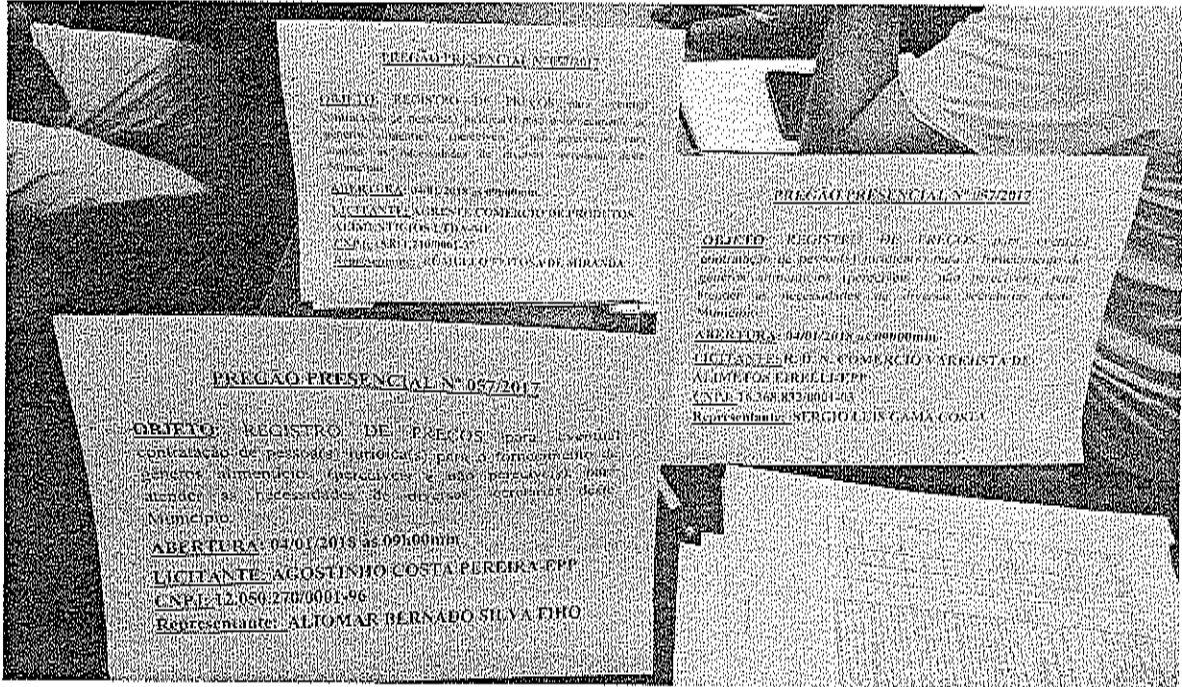 PREGÃO PRESENCIAL Nº 057/2017
OBJETO: REGISTRO DE PREÇOS para eventual
contratação de pessoa(s) jurídica(s) para o fornecimento de
gêneros alimentícios (perecíveis e não perecíveis) para
atender as necessidades de diversas secretarias deste
Município.
ABERTURA: 04/01/2018 as 09h00mm
LICITANTE: AGRESTE COMERCIO DE PRODUTOS
ALIMENTICIOS LTDA-ME
CNPJ:
Representante: ROMULO FEITOSA DE MIRANDA
PREGÃO PRESENCIAL Nº 057/2017
OBJETO: REGISTRO DE PREÇOS para eventual
contratação de pessoa(s) jurídica(s) para o fornecimento de
gêneros alimentícios (perecíveis e não perecíveis) para
atender as necessidades de diversas secretarias deste
Município.
ABERTURA: 04/01/2018 as 09h00mm
LICITANTE: R. D. S. COMERCIO VAREJISTA DE
ALIMETOS EIRELLI-EPP
CNPJ: 18.368.832/0001-03
Representante: SERGIO LUIS GAMA COSTA
PREGÃO PRESENCIAL Nº 057/2017
OBJETO: REGISTRO DE PREÇOS para eventual
contratação de pessoa(s) jurídica(s) para o fornecimento de
gêneros alimentícios (perecíveis e não perecíveis) para
atender as necessidades de diversas secretarias deste
Município.
ABERTURA: 04/01/2018 as 09h00mm
LICITANTE: AGOSTINHO COSTA PEREIRA-EPP
CNPJ: 12.050.270/0001-96
Representante: ALIOMAR BERNADO SILVA FIHO